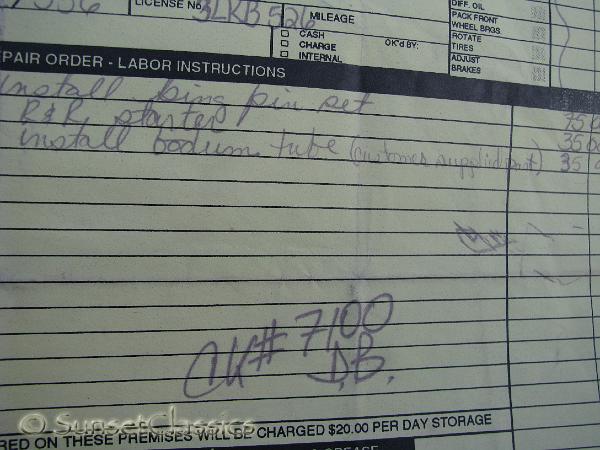 LICENSE No. 3LKB526
MILEAGE
CASH
CHARGE
INTERNAL
OK'd BY:
DIFF. OIL
PACK FRONT
WHEEL BRGS.
ROTATE
TIRES
ADJUST
BRAKES
PAIR ORDER - LABOR INSTRUCTIONS
install king pin set 35
R&R starter 35
install vacuum tube (customer supplied part) 35
CK# 7100
D.B.
RED ON THESE PREMISES WILL BE CHARGED $20.00 PER DAY STORAGE
© SunsetClassics